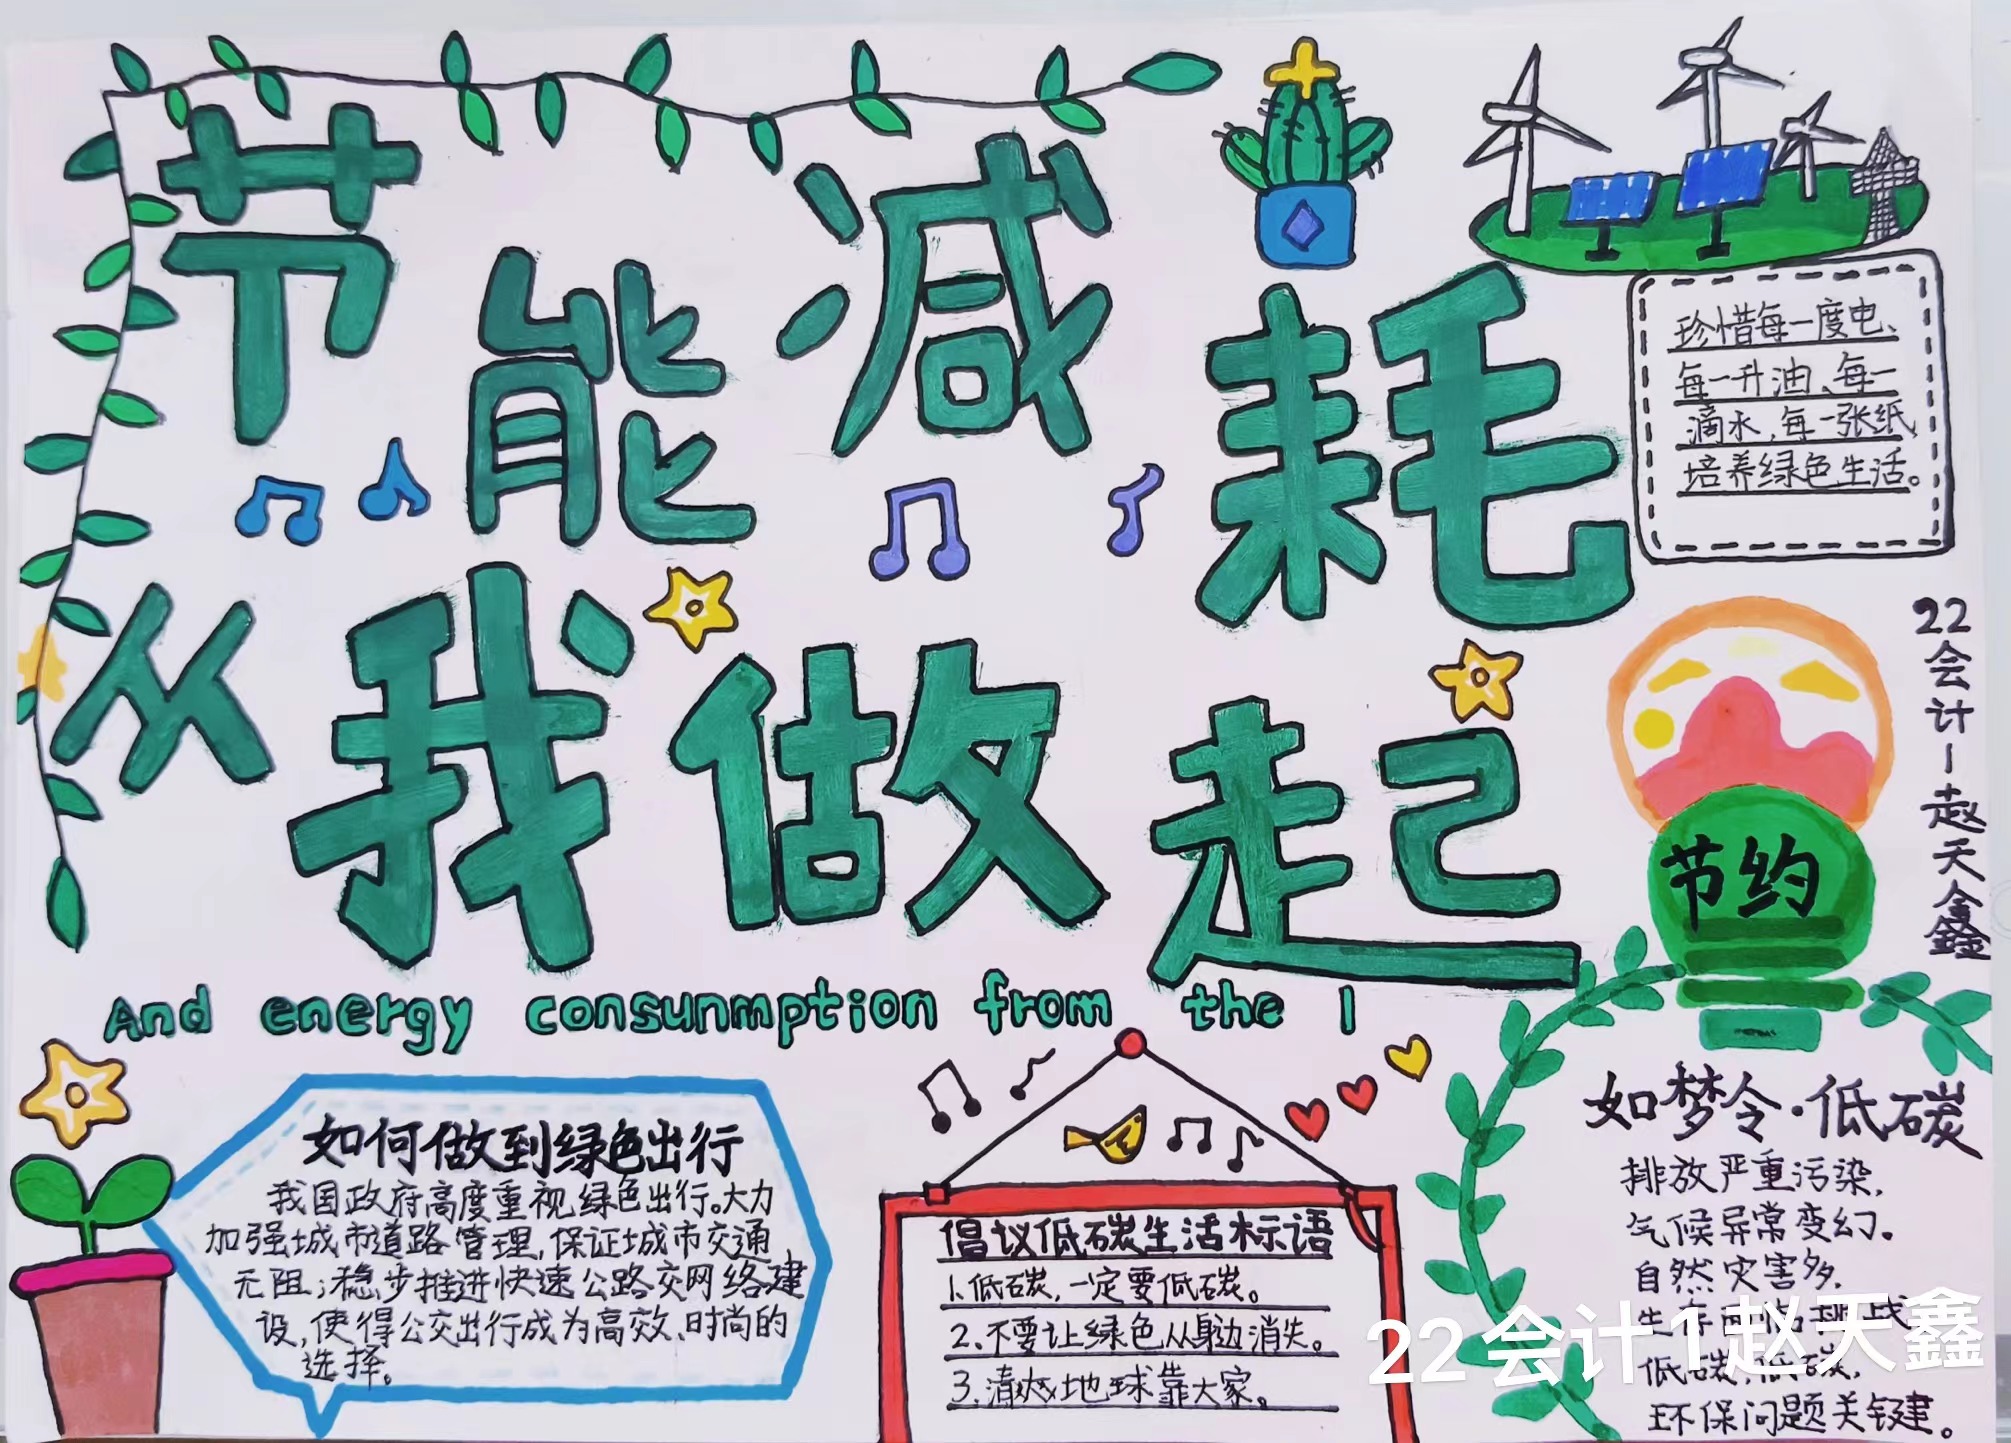 节能减耗
从我做起
And energy consunmption from the 1
珍惜每一度电、
每一升油、每一
滴水,每一张纸,
培养绿色生活。
22会计1赵天鑫
节约
如何做到绿色出行
我国政府高度重视绿色出行。大力
加强城市道路管理,保证城市交通
无阻;稳步推进快速公路交网络建
设,使得公交出行成为高效、时尚的
选择。
倡议低碳生活标语
1.低碳,一定要低碳。
2.不要让绿色从身边消失。
3.清爽地球靠大家。
如梦令·低碳
排放严重污染,
气候异常变幻。
自然灾害多,
生存面临挑战,
低碳,低碳,
环保问题关键建。
22会计1赵天鑫